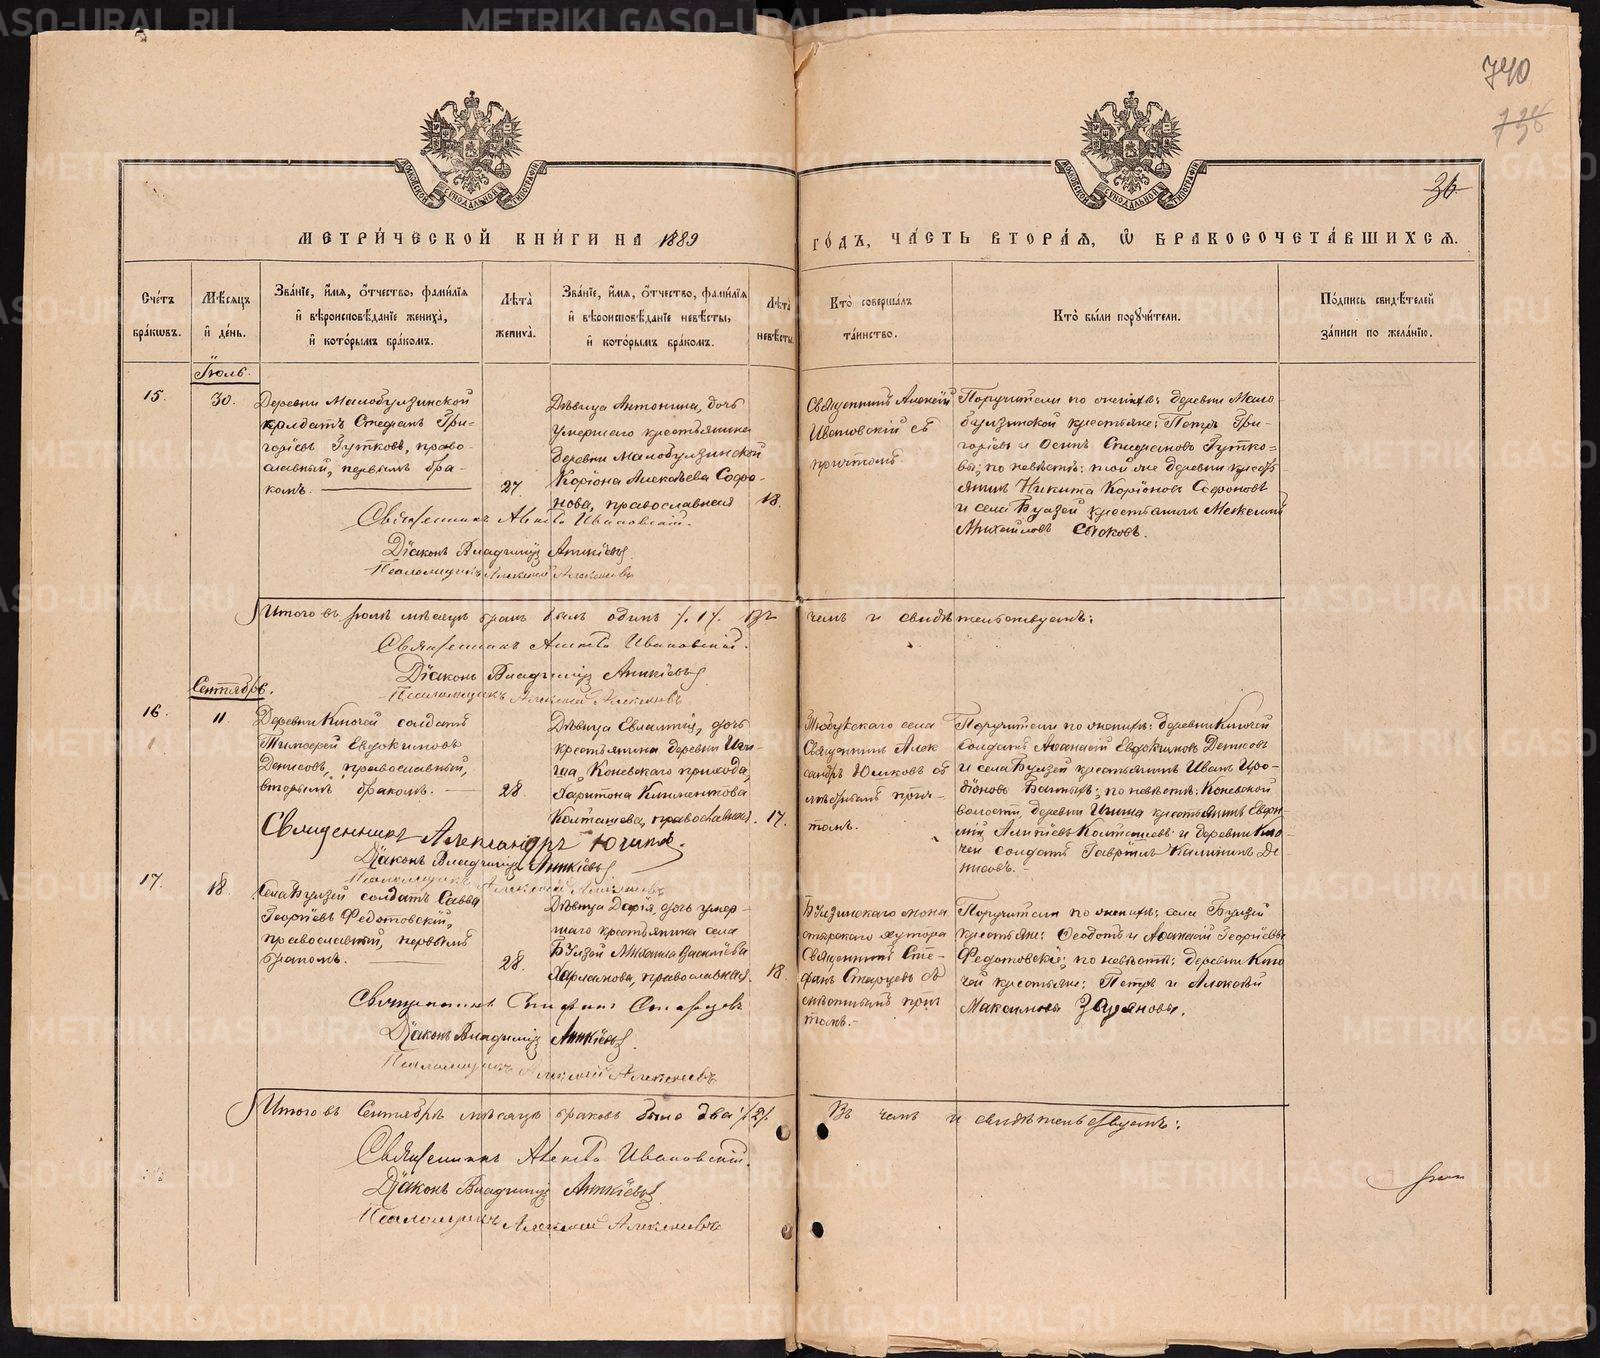 740
738
36
МЕТРИЧЕСКОЙ КНИГИ НА 1889
ГОДЪ, ЧАСТЬ ВТОРАЯ, Ѡ БРАКОСОЧЕТАВШИХСЯ.
Счетъ браковъ.
Мѣсяцъ и день.
Званіе, имя, отчество, фамилія
и вѣроисповѣданіе жениха,
и которымъ бракомъ.
Лѣта жениха.
Званіе, имя, отчество, фамилія
и вѣроисповѣданіе невѣсты,
и которымъ бракомъ.
Лѣта невѣсты.
Кто совершалъ
таинство.
Кто были поручители.
Подпись свидѣтелей
записи по желанію.
Іюль.
15.
30.
Деревни Малобулзинской
солдатъ Стефанъ Гри-
горіевъ Гутковъ, право-
славный, первымъ бра-
комъ.
27.
Дѣвица Антонина, дочь
умершаго крестьянина
деревни Малобулзинской
Корióна Алексѣева Софо-
нова, православная
18.
Священникъ Алексій
Ивановскій съ
причтомъ
Поручители по женихѣ: деревни Мало-
булзинской крестьяне: Петръ Гри-
горіевъ и Осипъ Стефановъ Гутко-
вы; по невѣстѣ: той же деревни кресть-
янинъ Никита Коріоновъ Софоновъ
и села Булзей крестьянинъ
Михайловъ
Священникъ Алексѣй Ивановскій.
Діаконъ Владиміръ
Псаломщикъ Алексій Алексѣевъ
Итого въ Іюлѣ мѣсяцѣ бракъ былъ одинъ /.1/. въ
чемъ и свидѣтельствуемъ:
Священникъ Алексѣй Ивановскій.
Діаконъ Владиміръ
Псаломщикъ Алексѣй Алексѣевъ
Сентябрь.
16.
11.
Деревни Ключей солдатъ
Тимофей Евдокимовъ
Денисовъ, православный,
вторымъ бракомъ.
28.
Дѣвица Евлампія, дочь
крестьянина деревни
Коневскаго прихода,
Харитона Климентова
Колташева, православная.
17.
Тюбукскаго села
Священникъ Алек
сандръ Юшковъ съ
мѣстнымъ прич-
томъ.
Поручители по женихѣ: деревни Ключей
солдатъ Аѳанасій Евдокимовъ Денисовъ
и села Булзей крестьянинъ Иванъ Иро-
діоновъ по невѣстѣ: Коневской
волости, деревни крестьянинъ
Колташевъ и деревни Клю-
чей солдатъ Гавріилъ Калининъ Де
нисовъ.
Священникъ Александръ Юшковъ.
Діаконъ Владиміръ
Псаломщикъ Алексѣй Алексѣевъ
17.
18.
Села Булзей солдатъ Савва
Георгіевъ Федотовскій,
православный, первымъ
бракомъ.
28.
Дѣвица Дарія, дочь умер-
шаго крестьянина села
Булзей Михаила Васильева
Харламова, православная.
18.
Булзинскаго мона
стырскаго хутора
Священникъ Сте-
фанъ Старцевъ съ
мѣстнымъ прич
томъ.-
Поручители по женихѣ: села Булзей
крестьяне: Ѳеодотъ и Аѳанасій Георгіевы
Федотовскіе; по невѣстѣ: деревни Клю
чей крестьяне: Петръ и Алексѣй
Максимовы
Священникъ Стефанъ Старцевъ
Діаконъ Владиміръ
Псаломщикъ Алексѣй Алексѣевъ
Итого въ Сентябрѣ мѣсяцѣ браковъ было два /.2/.
Въ чемъ и свидѣтельствуемъ:
Священникъ Алексѣй Ивановскій.
Діаконъ Владиміръ
Псаломщикъ Алексѣй Алексѣевъ
METRIKI.GASO-URAL.RU